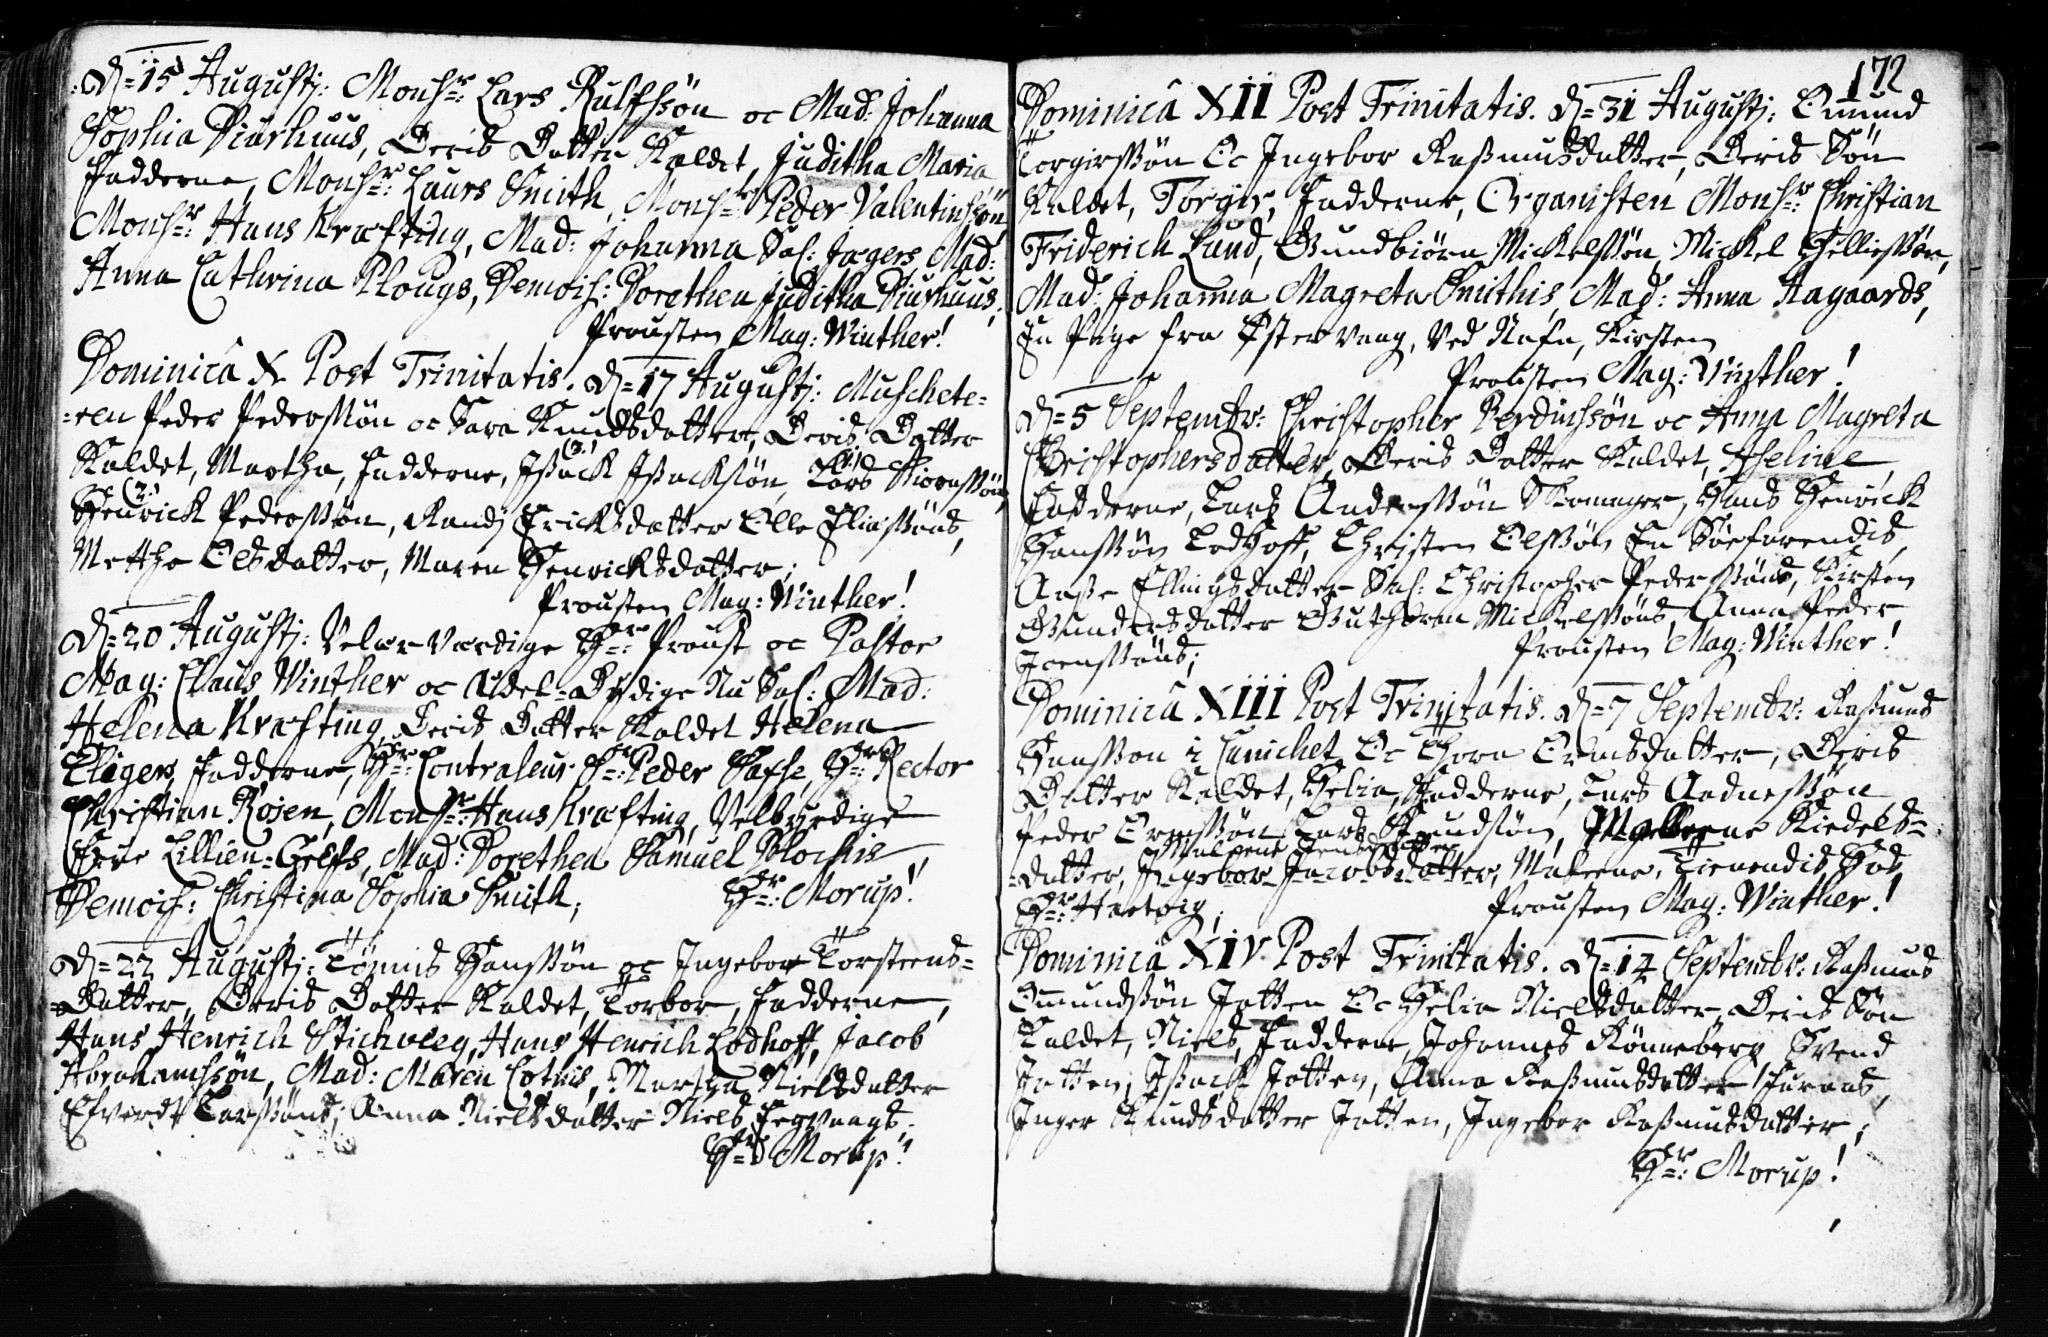 D=15 Augustj: Monsr: Lars Rulfsøn oc Mad: Johanna
Sophia Diurhuus, Deris Datter Kaldet, Juditha Maria
Fadderne, Monsr: Laurs Smith, Monsr: Peder Valentinssøn,
Monsr: Hans Kræfting, Mad: Johanna Sal: Jægers, Mad:
Anna Cathrina Plougs, Demois: Dorethea Juditha Diurhuus;
Prousten Mag: Winther!
Dominicâ X Post Trinitatis. D=17 Augustj: Muschete=
=ren Peder Pederssøn oc Sara Knudsdatter, Deris Datter
Kaldet, Martha, Fadderne, Isack Isacksøn, Lars
Henrick Pederssøn, Randj Ericksdatter Elle Eliassøns,
Metthe Olsdatter, Maren Henricksdatter;
Prousten Mag: Winther!
D=20 Augustj: Velær Værdige Hr: Proust oc Pastor
Mag: Claus Winther oc Ædel=Dydige Nu Sal: Mad:
Helena Kræfting, Deris Datter Kaldet Helena
Elligers, Fadderne, Hr: Contraleur Sr: Peder Hr: Rector
Christian Rosen, Monsr: Hans Kræfting, Velbyrdige
Frue Lillien=Gelfs, Mad: Dorethea Samuel Blochis
Demois: Christina Sophia Smith; Hr: Morup!
D=22 Augustj: Tønnis Hanssøn oc Ingebor Torsteens=
=Datter, Deris Datter Kaldet, Torbor, Fadderne,
Hans Henrich Stichweeg, Hans Henrich Lodhoff, Jacob
Abrahamssøn, Mad: Maren Cotnis, Martha Nielsdatter
Efverdt Larssøns; Anna Nielsdatter Niels
Hr: Morup!
172
Dominicâ XII Post Trinitatis. D=31 Augustj: Omund
Torgirssøn Oc Ingebor Rasmusdatter, Deris Søn
Kaldet, Torgir, Fadderne, Organisten Monsr: Christian
Friderich Lund, Gundbiørn Mickelssøn, Mickel Helliessøn,
Mad: Johanna Magreta Smithis, Mad: Anna Aagaards,
En Pige fra Østervaag, Ved Nafn, Kirsten
Prousten Mag: Winther!
D=5 Septembr: Christopher Berdinssøn oc Anna Magreta
Christophersdatter, Deris Datter Kaldet, Aseline,
Fadderne, Lars Anderssøn Skomager, Hans Henrick
Hanssøn Lodhoff, Christen Olssøn En Søefarendis,
Aase Ellingsdatter Sal: Christopher Pederssøns, Kirsten
Gundersdatter Guthorm Mickelssøns, Anna Peder
Joenssøns; Prousten Mag: Winther!
Dominicâ XIII Post Trinitatis. D=7 Septembr: Rasmus
Hanssøn i Oc Thora Ormsdatter, Deris
Datter Kaldet, Helia, Fadderne, Lars Aadnessøn
Peder Ormssøn, Lars Malleene Kiedels=
Malene Jensdatter
=datter, Ingebor Jacobsdatter, Malene, Tienendis Hos
Hr: Hartvig; Prousten Mag: Winther!
Dominicâ XIV Post Trinitatis. D=14 Septembr: Rasmus
Omundssøn Jatten Oc Helia Nielsdatter, Deris Søn
Kaldet, Niels, Fadderne, Johannes Rønneberg, Svend
Jatten, Isack Jatten, Anna Rasmusdatter
Inger Knudsdatter Jatten, Ingebor Rasmusdatter;
Hr: Morup!